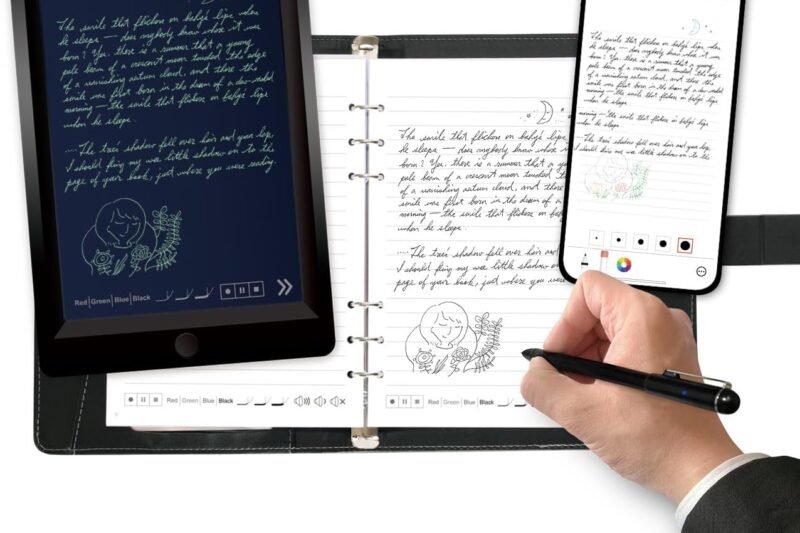 The smile that flickers on baby's lips when
he sleeps — does anybody know where it was
born? Yes, there is a rumour that a young
pale beam of a crescent moon touched the edge
of a vanishing autumn cloud, and there the
smile was first born in the dream of a dew-washed
morning — the smile that flickers on baby's lips
when he sleeps.
.... The tree's shadow fell over hair and your lap,
I should fling my wee little shadow on to the
page of your book, just where you were reading.
Red Green Blue Black
The smile that flickers on baby's lips
he sleeps — does anybody know where it
born? Yes, there is a rumour that a y
pale beam of a crescent moon touched the
of a vanishing autumn cloud, and there
smile was first born in the dream of a
morning — the smile that flickers on bab
when he sleeps.
.... The tree's shadow fell over hair and
I should fling my wee little shadow
page of your book, just where you were
Red Green Blue Black
Red Green Blue Black
The smile that flickers on baby's lips when
he sleeps — does anybody know where it was
born? Yes, there is a rumour that a young
pale beam of a crescent moon touched the edge
of a vanishing autumn cloud, and there the
smile was first born in the dream of a dew-washed
morning — the smile that flickers on baby's lips
when he sleeps.
.... The tree's shadow fell over hair and your lap,
I should fling my wee little shadow on to the